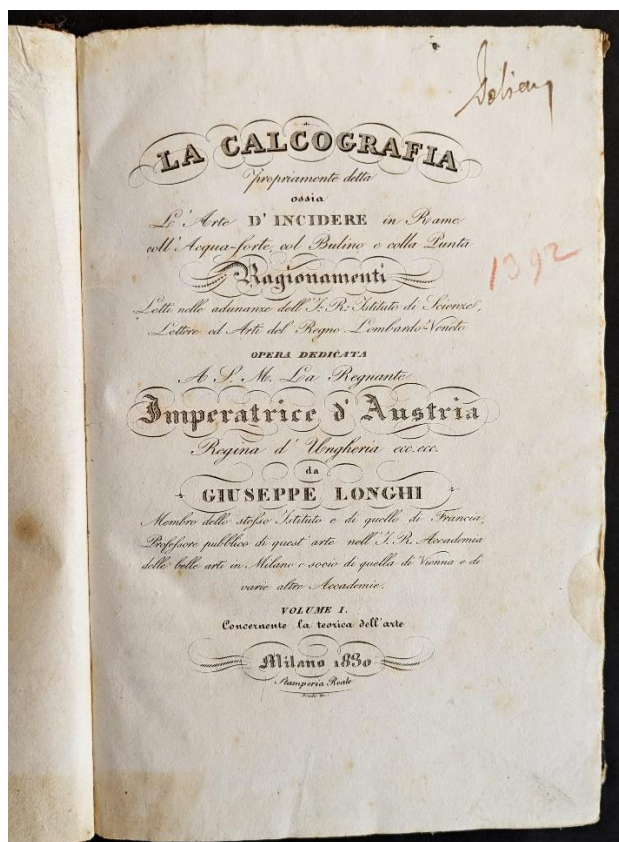 LA CALCOGRAFIA
propriamente detta
ossia
L'Arte D'INCIDERE in Rame
coll'Acqua-forte, col Bulino e colla Punta
Ragionamenti
Letti nelle adunanze dell'I. R. Istituto di Scienze,
Lettere ed Arti del Regno Lombardo-Veneto
OPERA DEDICATA
A S. M. La Regnante
Imperatrice d'Austria
Regina d'Ungheria ecc. ecc.
da
GIUSEPPE LONGHI
Membro dello stesso Istituto e di quello di Francia,
Professore pubblico di quest'arte nell'I. R. Accademia
delle belle arti in Milano e socio di quella di Vienna e di
varie altre Accademie.
VOLUME I.
Concernente la teorica dell'arte
Milano 1830
Stamperia Reale
1392